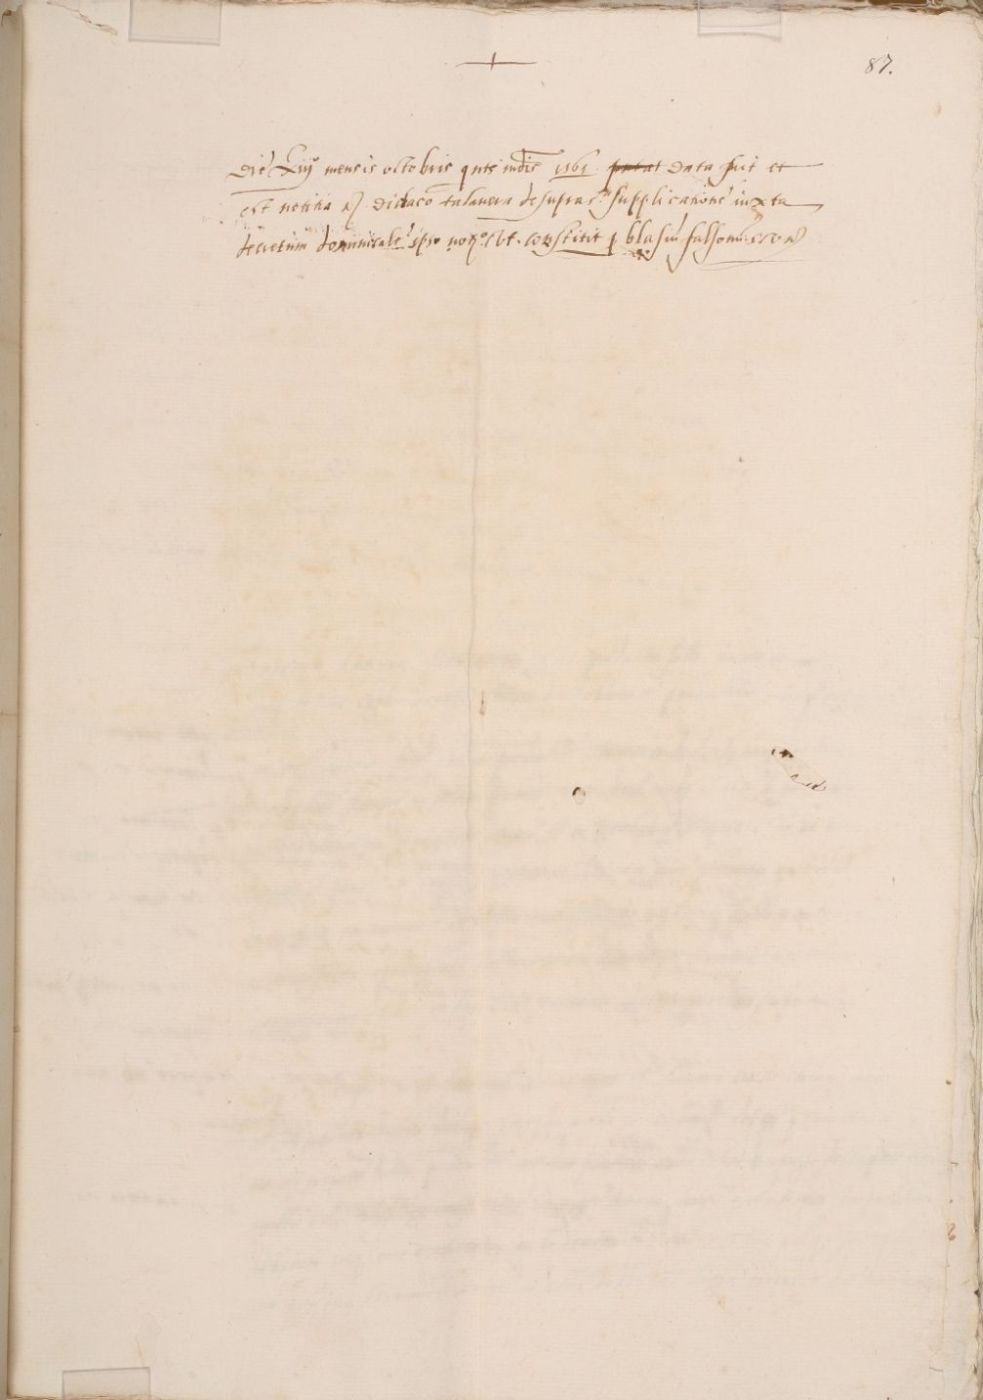 87.
Die xiiij mensis octobris qnte indis 1561 data fuit et
est notitia didaco talavera de supra supplicatione iuxta
decretum dominicale ipso constitit p blasiu